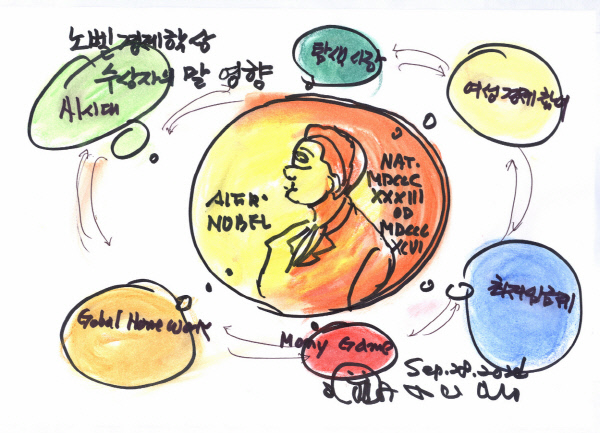 노벨 경제학상
수상자의 말 영향
AI시대
탐색 사랑
여성 경제 참여
ALFR·
NOBEL
NAT.
MDCCC
XXXIII
OD
MDCCC
XCVI
Gobal Home Work
Momy Game
Sep.28.2026